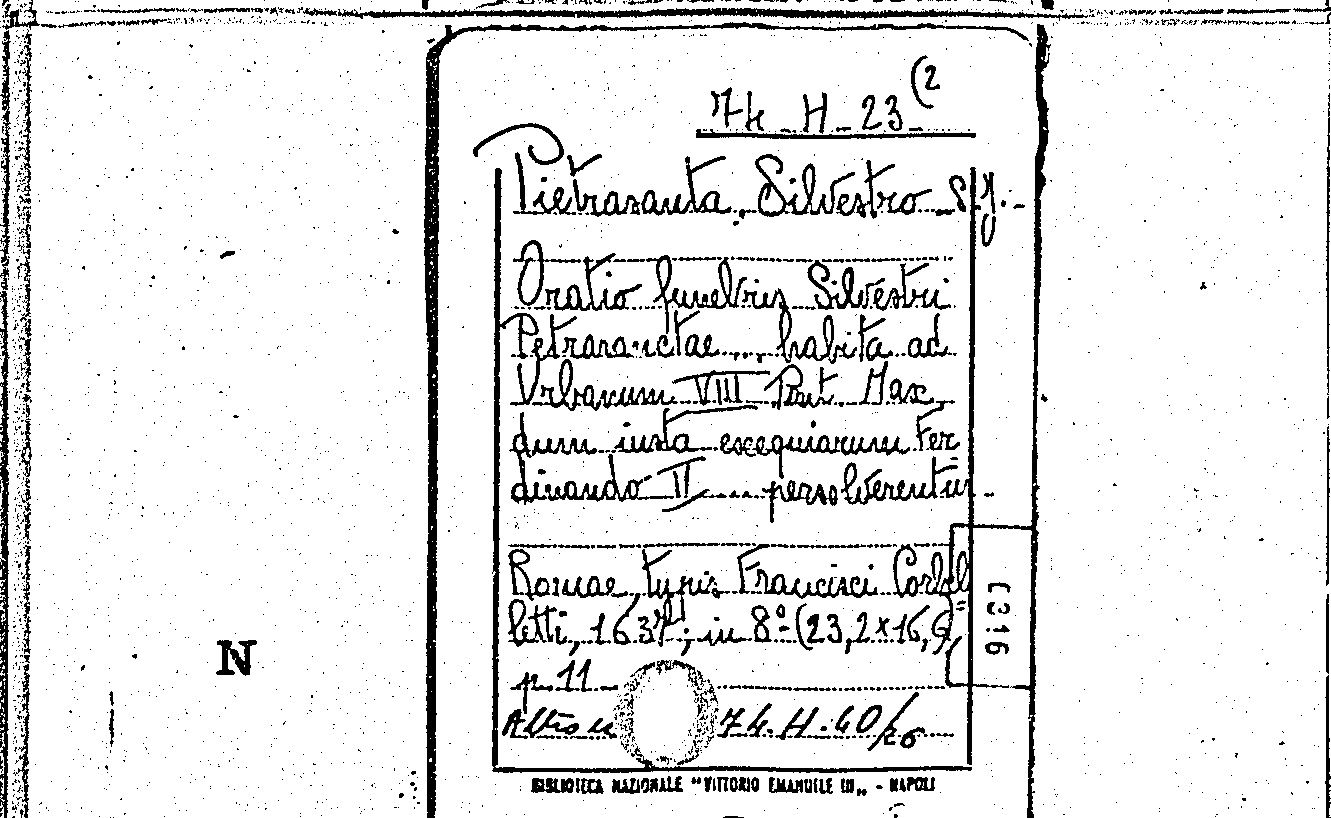 74 H 23 (2
Pietrasanta, Silvestro S.J. -
Oratio funebris Silvestri
Petrasanctae ... habita ad
Urbanum VIII Pont. Max.
dum iusta exequiarum Fer
dinando II .... persolverentur -
Romae, typis Francisci Corbel
letti, 1637; in 8º (23,2 x 16,
p. 11
74.H.40/26
BIBLIOTECA NAZIONALE "VITTORIO EMANUELE III„ - NAPOLI
0316
N